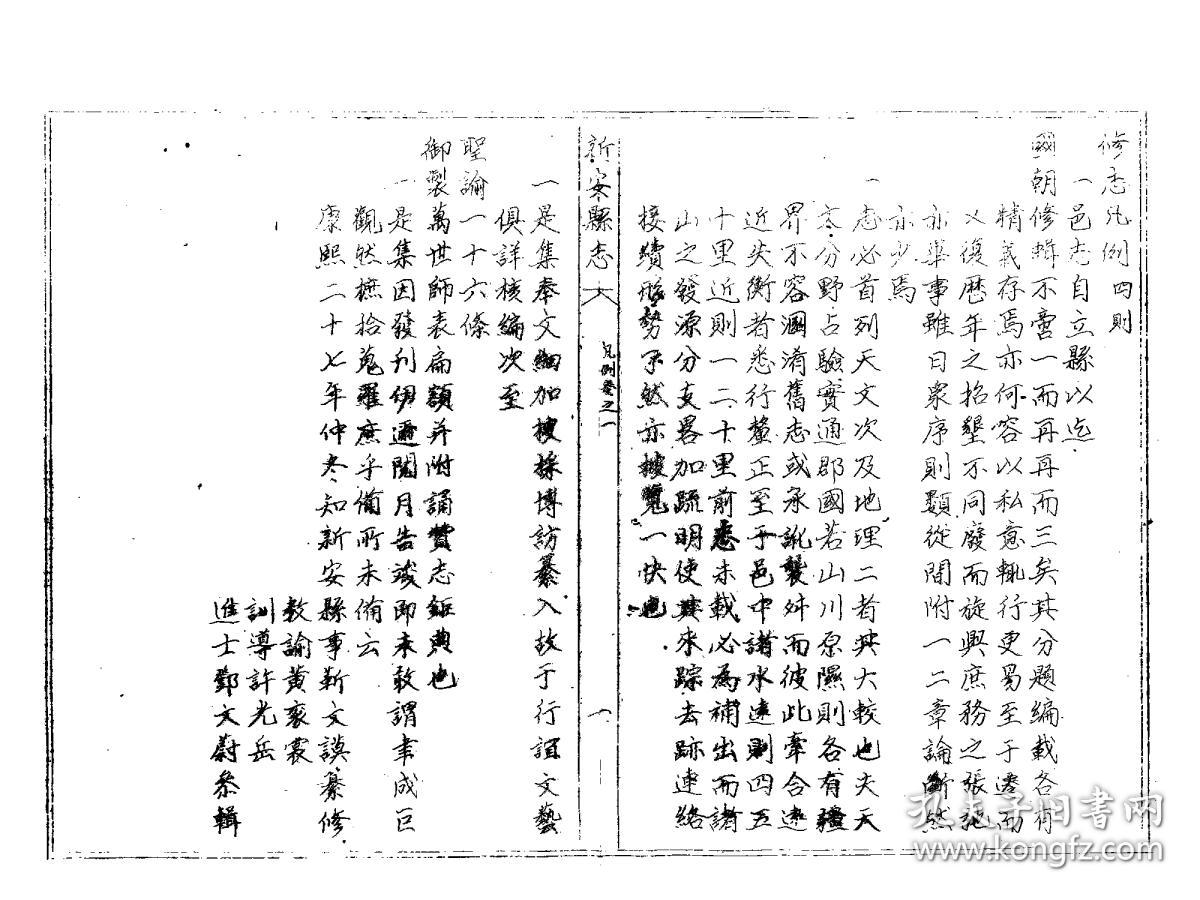 修志凡例四則
一邑志自立縣以迄
國朝修輯不啻一而再再而三矣其分題編載各有
精義存焉亦何容以私意輒行更易至于遷而
復歷年之招墾不同廢而旋興庶務之張弛
亦舉事雖日衆序則類從間附一二章論斷然
亦少焉
一志必首列天文次及地理二者其大較也夫天
文分野占驗實通郡國若山川原隰則各有疆
界不容溷淆舊志或承訛襲舛而彼此牽合遠
近失衡者悉行釐正至于邑中諸水遠則四五
十里近則一二十里前悉未載必為補出而諸
山之發源分支畧加疏明使其來踪去跡連絡
接續形勢了然亦披覽一快也
新安縣志
凡例卷之一
一
一是集奉文細加搜採博訪纂入故于行誼文藝
俱詳核編次至
聖諭一十六條
御製萬世師表扁額并附誦贊志鉅典也
一是集因發刊伊邇閱月告竣即未敢謂聿成巨
觀然摭拾蒐羅庶乎備所未備云
康熙二十七年仲冬知新安縣事靳文謨纂修
教諭黃袞裳
訓導許光岳
進士鄧文蔚參輯
孔夫子旧书网
www.kongfz.com